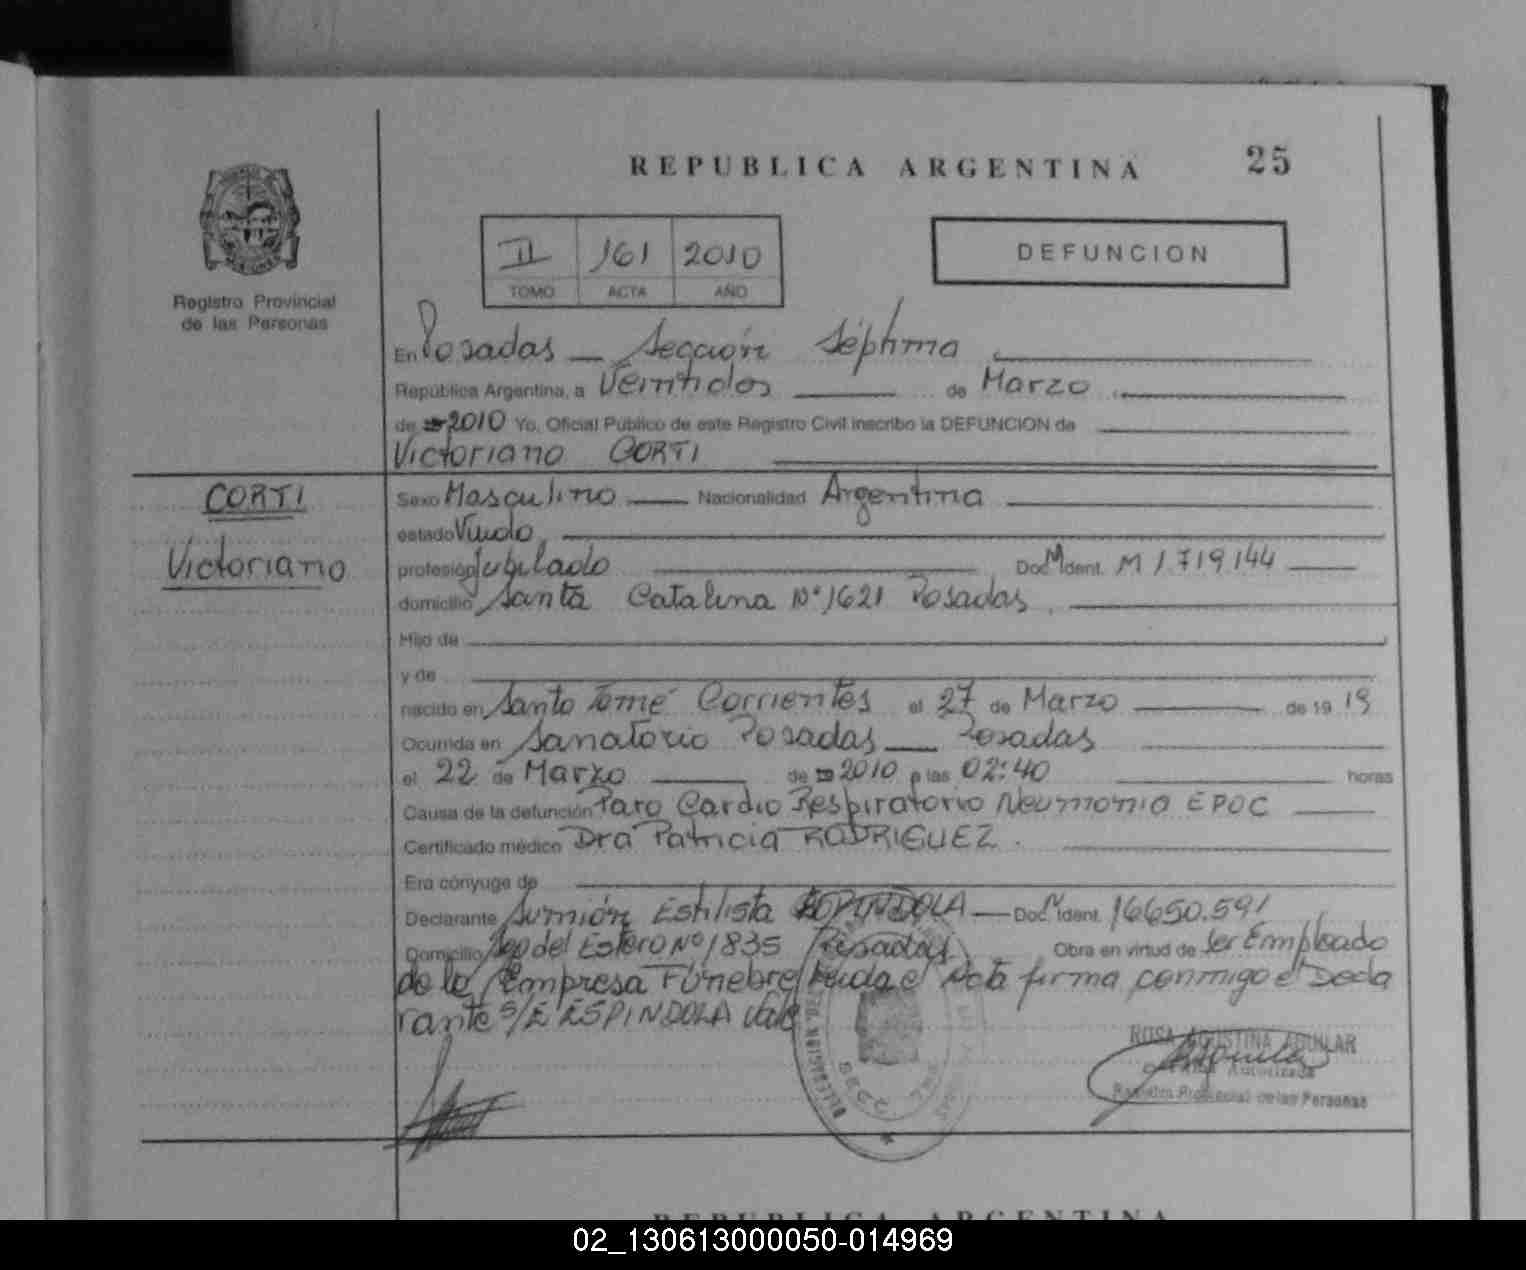 REPUBLICA ARGENTINA 25
Registro Provincial
de las Personas
II 161 2010
TOMO ACTA AÑO
DEFUNCION
En Posadas — Sección Séptima
República Argentina, a Veintidos de Marzo
de 2010 Yo, Oficial Público de este Registro Civil inscribo la DEFUNCION de
Victoriano CORTI
CORTI
Victoriano
Sexo Masculino Nacionalidad Argentina
estado Viudo
profesión Jubilado Doc. N Ident. M 1.719.144
domicilio Santa Catalina Nº 1621 Posadas.
Hijo de
y de
nacido en Santo Tomé Corrientes el 27 de Marzo de 19 19
Ocurrida en Sanatorio Posadas — Posadas
el 22 de Marzo de 2010 a las 02:40 horas
Causa de la defunción Paro Cardio Respiratorio Neumonia EPOC
Certificado médico Dra Patricia RODRIGUEZ.
Era cónyuge de
Declarante Estilista ESPINDOLA — Doc. N Ident. 16650.591
Domicilio Sgo del Estero Nº 1835 Posadas Obra en virtud de ser Empleado
de la Empresa Fúnebre Leida el Acta firma conmigo el Decla
rante S/E ESPINDOLA Vale
ROSA AGUSTINA AGUILAR
Autorizada
Registro Provincial de las Personas
REPUBLICA ARGENTINA
02_130613000050-014969